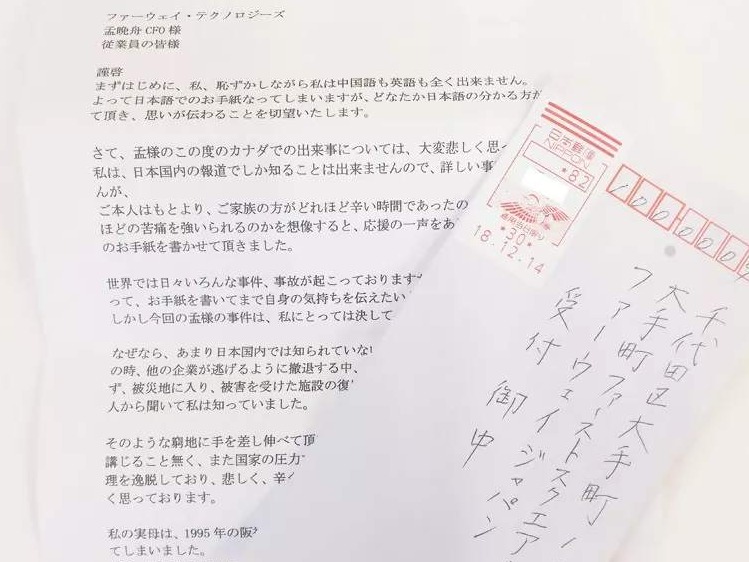 ファーウェイ・テクノロジーズ
孟晩舟 CFO 様
従業員の皆様
謹啓
まずはじめに、私、恥ずかしながら私は中国語も英語も全く出来ません。
よって日本語でのお手紙なってしまいますが、どなたか日本語の分かる方が
て頂き、思いが伝わることを切望いたします。
さて、孟様のこの度のカナダでの出来事については、大変悲しく思
私は、日本国内の報道でしか知ることは出来ませんので、詳しい事
んが、
ご本人はもとより、ご家族の方がどれほど辛い時間であったの
ほどの苦痛を強いられるのかを想像すると、応援の一声をあ
のお手紙を書かせて頂きました。
世界では日々いろんな事件、事故が起こっております
って、お手紙を書いてまで自身の気持ちを伝えたい
しかし今回の孟様の事件は、私にとっては決して
なぜなら、あまり日本国内では知られていな
の時、他の企業が逃げるように撤退する中、
ず、被災地に入り、被害を受けた施設の復
人から聞いて私は知っていました。
そのような窮地に手を差し伸べて頂
講じること無く、また国家の圧力
理を逸脱しており、悲しく、辛
く思っております。
私の実母は、1995 年の阪
てしまいました。
日本郵便
NIPPON
*82
*30*
18.12.14
1000004
千代田区大手町
大手町ファーストスクエア
ファーウェイジャパン
受付 御中